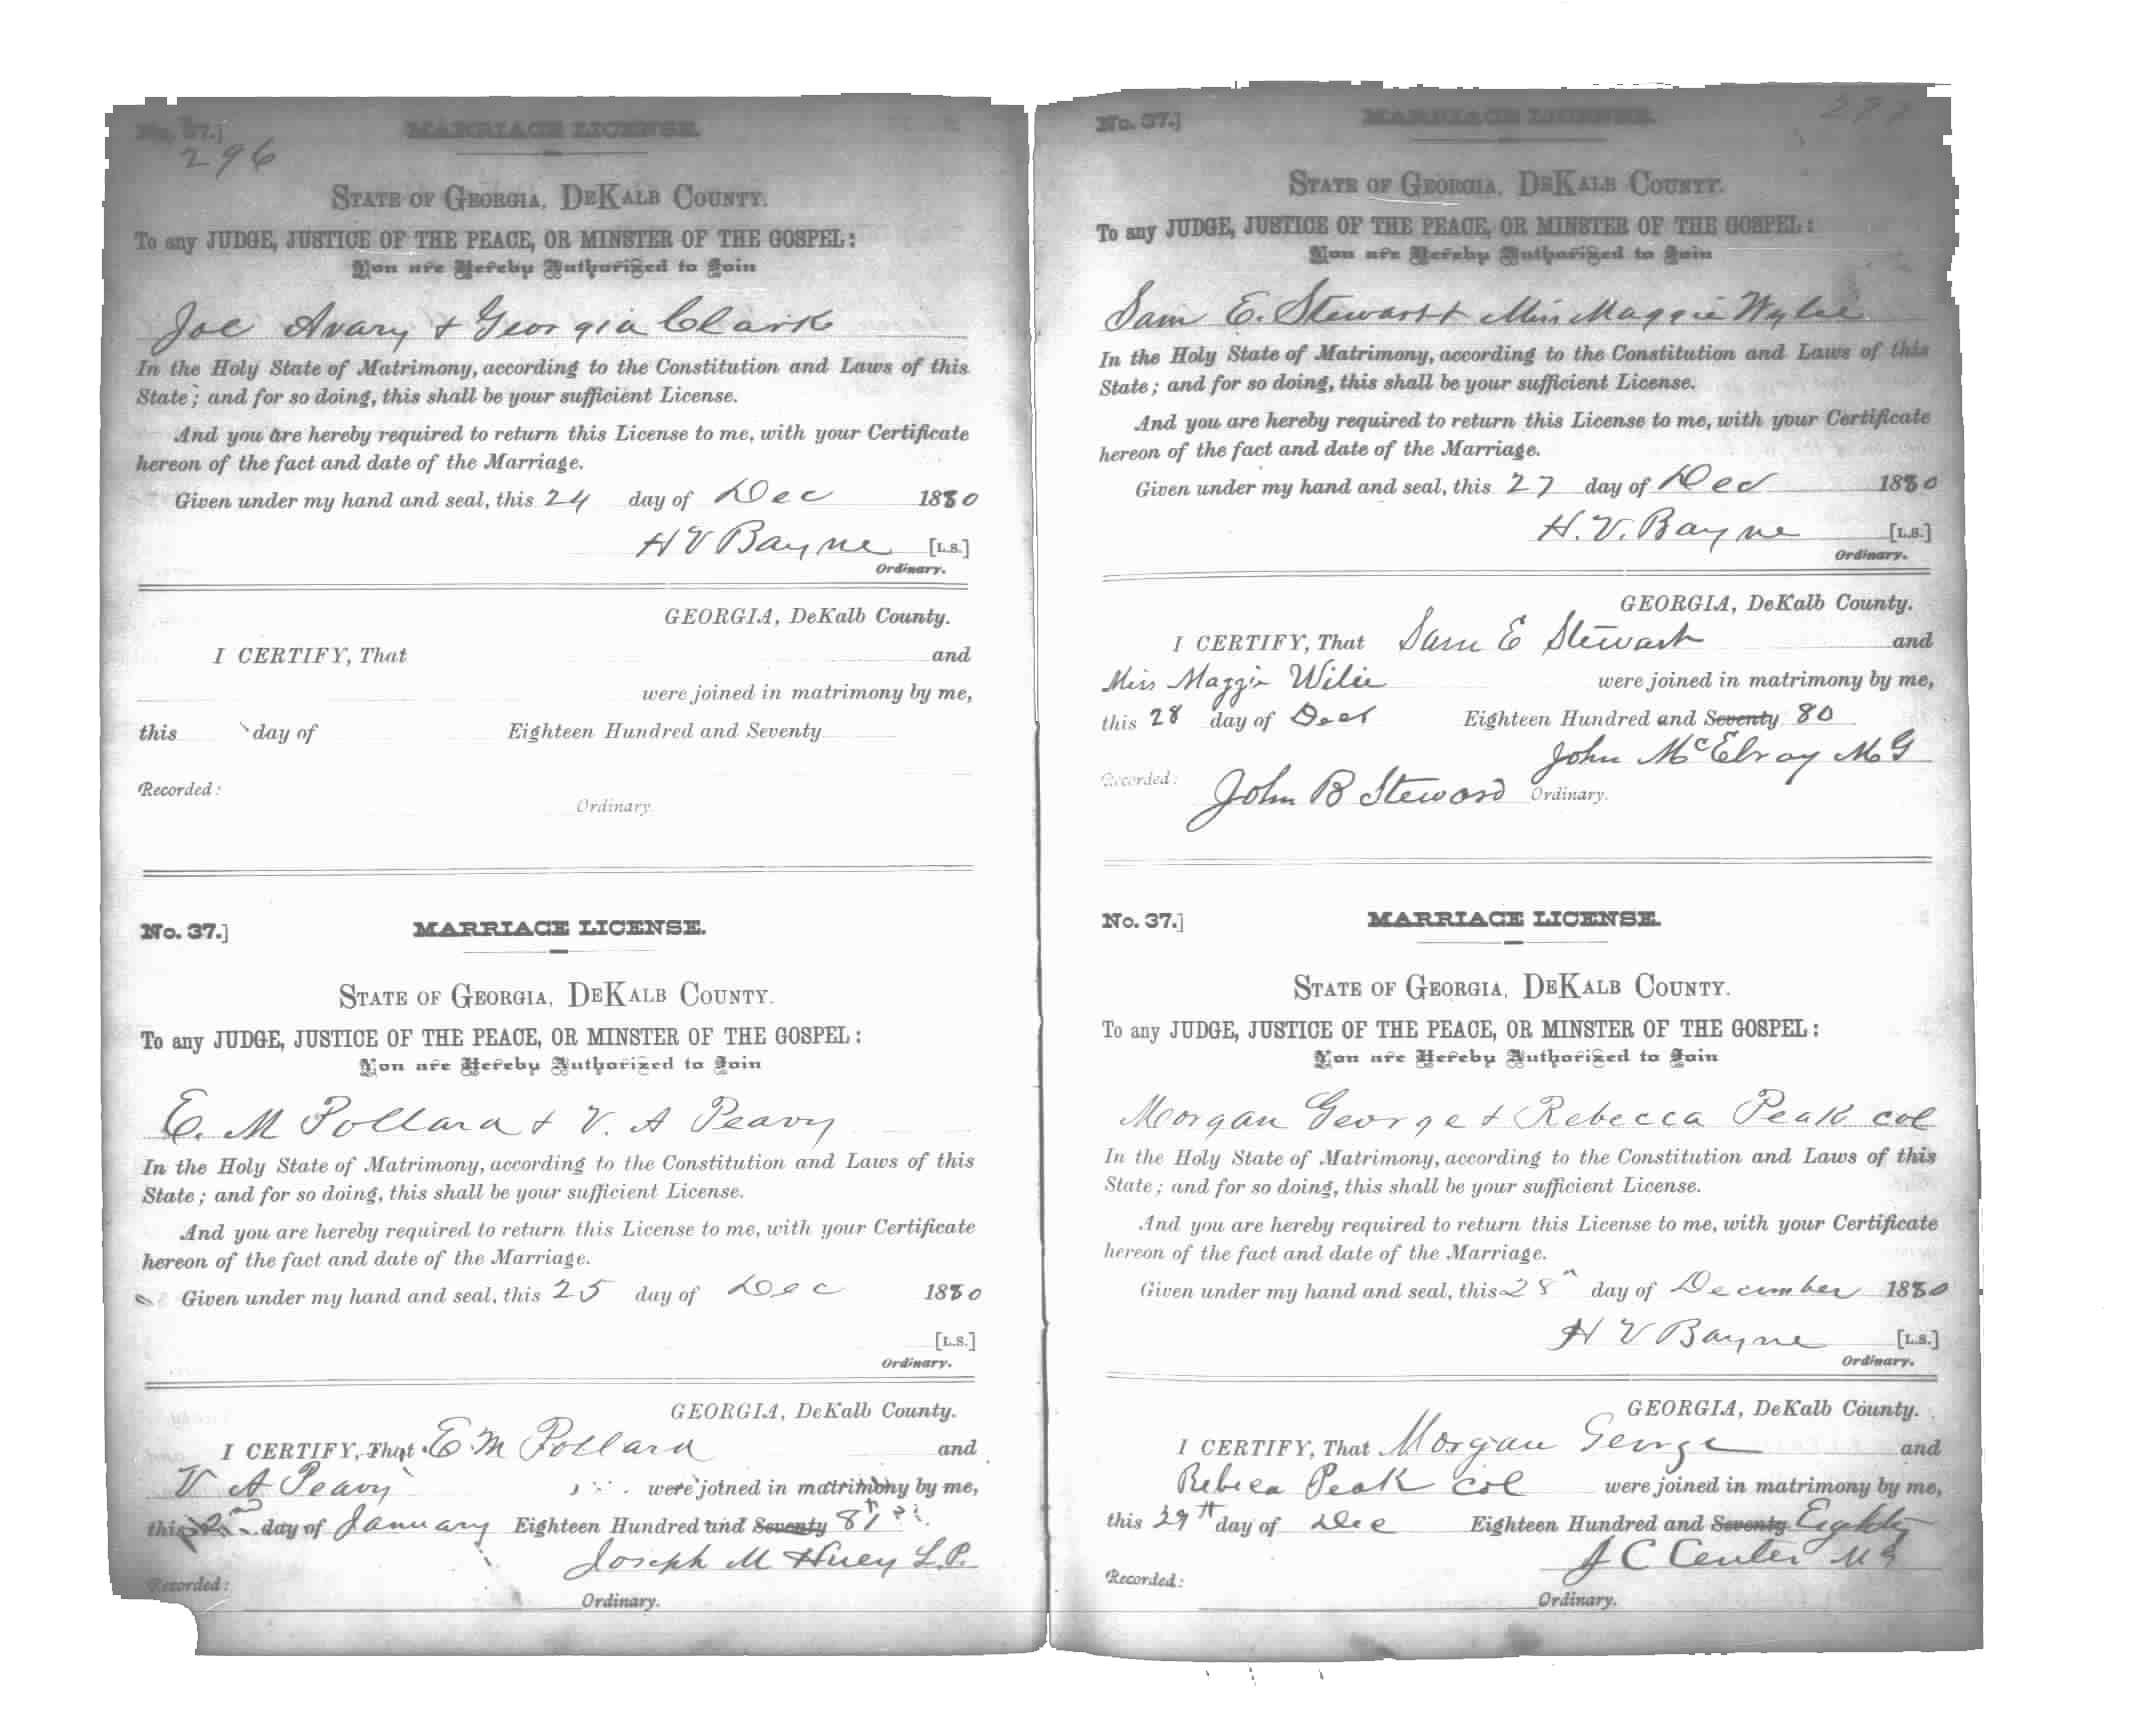 No. 37.]
296
MARRIAGE LICENSE.
STATE OF GEORGIA, DEKALB COUNTY.
To any JUDGE, JUSTICE OF THE PEACE, OR MINSTER OF THE GOSPEL:
You are Hereby Authorized to Join
Joe Avary & Georgia Clark
In the Holy State of Matrimony, according to the Constitution and Laws of this
State; and for so doing, this shall be your sufficient License.
And you are hereby required to return this License to me, with your Certificate
hereon of the fact and date of the Marriage.
Given under my hand and seal, this 24 day of Dec 1880
H V Bayne [L.S.]
Ordinary.
GEORGIA, DeKalb County.
I CERTIFY, That and
were joined in matrimony by me,
this day of Eighteen Hundred and Seventy
Recorded:
Ordinary.
No. 37.]
MARRIAGE LICENSE.
STATE OF GEORGIA, DEKALB COUNTY.
To any JUDGE, JUSTICE OF THE PEACE, OR MINSTER OF THE GOSPEL:
You are Hereby Authorized to Join
E. M Pollard & V. A Peavy
In the Holy State of Matrimony, according to the Constitution and Laws of this
State; and for so doing, this shall be your sufficient License.
And you are hereby required to return this License to me, with your Certificate
hereon of the fact and date of the Marriage.
Given under my hand and seal, this 25 day of Dec 1880
[L.S.]
Ordinary.
GEORGIA, DeKalb County.
I CERTIFY, That E. M Pollard and
V A Peavy were joined in matrimony by me,
this 2nd day of January Eighteen Hundred and Seventy 81
Joseph M Huey L.P.
Recorded:
Ordinary.
No. 37.]
297
MARRIAGE LICENSE.
STATE OF GEORGIA, DEKALB COUNTY.
To any JUDGE, JUSTICE OF THE PEACE, OR MINSTER OF THE GOSPEL:
You are Hereby Authorized to Join
Sam E. Stewart & Miss Maggie Wylie
In the Holy State of Matrimony, according to the Constitution and Laws of this
State; and for so doing, this shall be your sufficient License.
And you are hereby required to return this License to me, with your Certificate
hereon of the fact and date of the Marriage.
Given under my hand and seal, this 27 day of Dec 1880
H. V. Bayne [L.S.]
Ordinary.
GEORGIA, DeKalb County.
I CERTIFY, That Sam E Stewart and
Miss Maggie Wilie were joined in matrimony by me,
this 28 day of Decr Eighteen Hundred and Seventy 80
John McElroy M G
Recorded: John B Steward Ordinary.
No. 37.]
MARRIAGE LICENSE.
STATE OF GEORGIA, DEKALB COUNTY.
To any JUDGE, JUSTICE OF THE PEACE, OR MINSTER OF THE GOSPEL:
You are Hereby Authorized to Join
Morgan George & Rebecca Peak col
In the Holy State of Matrimony, according to the Constitution and Laws of this
State; and for so doing, this shall be your sufficient License.
And you are hereby required to return this License to me, with your Certificate
hereon of the fact and date of the Marriage.
Given under my hand and seal, this 28 day of December 1880
H V Bayne [L.S.]
Ordinary.
GEORGIA, DeKalb County.
I CERTIFY, That Morgan George and
Rebeca Peak col were joined in matrimony by me,
this 29th day of Dec Eighteen Hundred and Seventy Eighty
J C Center M G
Recorded:
Ordinary.